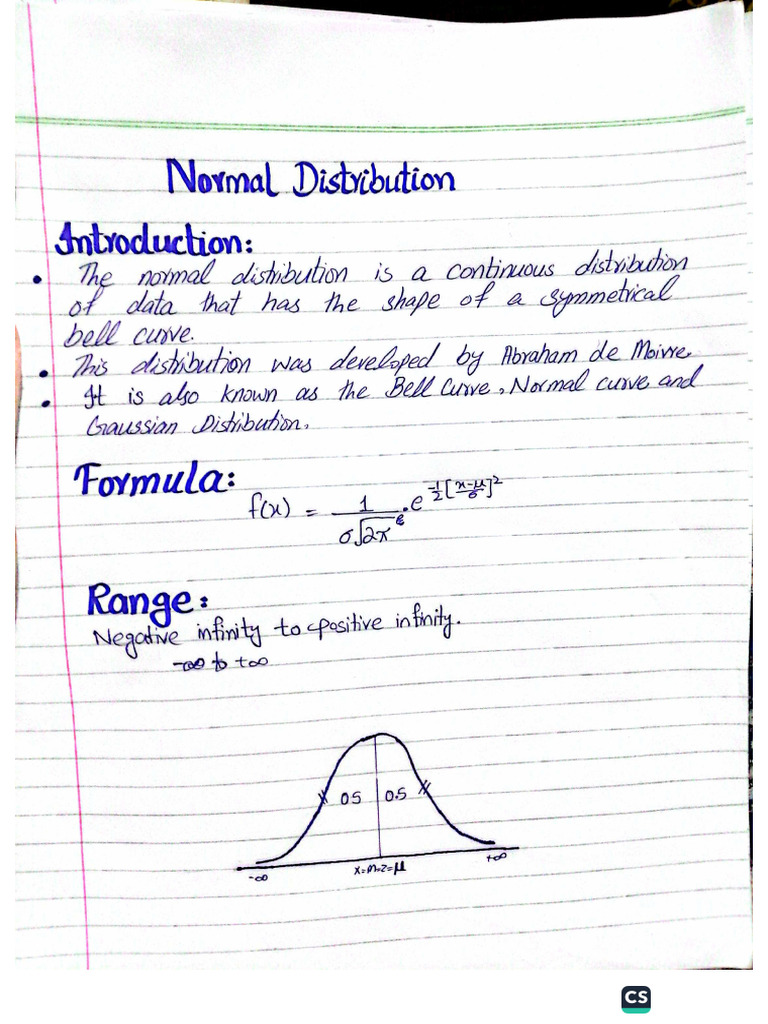 Normal Distribution
Introduction:
• The normal distribution is a continuous distribution
of data that has the shape of a symmetrical
bell curve.
• This distribution was developed by Abraham de Moivre.
• It is also known as the Bell Curve, Normal curve and
Gaussian Distribution.
Formula:
f(x) = 1/σ√2π · e^-1/2[x-μ/σ]^2
Range:
Negative infinity to positive infinity.
-∞ to +∞
0.5 0.5
-∞ X=M=Z=μ +∞
CS